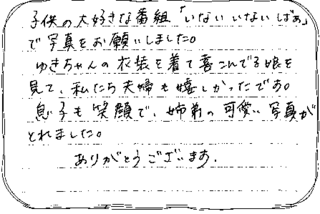 子供の大好きな番組「いないいないばぁ」
で写真をお願いしました。
ゆきちゃんの衣装を着て喜こんでる娘を
見て、私たち夫婦も嬉しかったです。
息子も笑顔で、姉弟の可愛い写真が
とれました。
ありがとうございます。